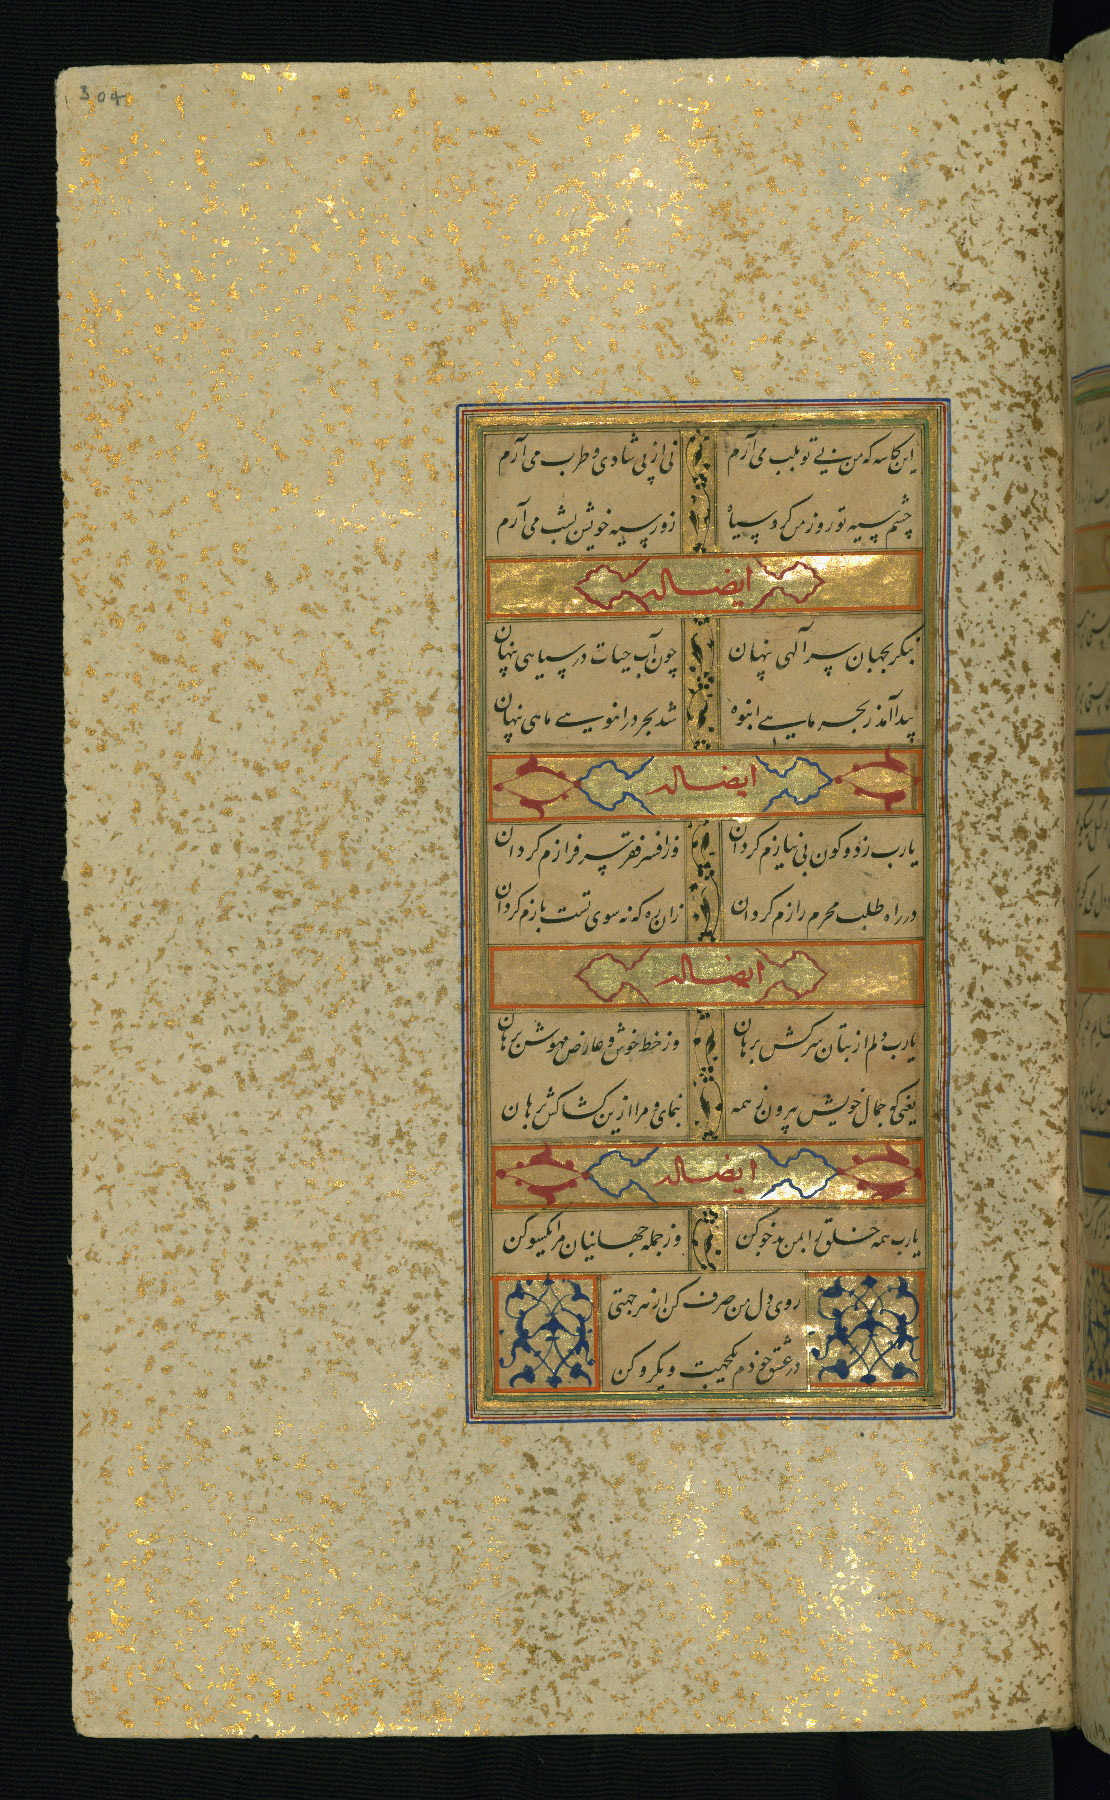 309
این کاسه که من بی تو بلب می آرم نی از پی شادی و طرب می آرم
چشم سیه تو روز من کرد سیاه روز سیه خویش بشب می آرم
ایضا له
بنگر بجهان سر الهی پنهان چون آب حیات در سیاهی پنهان
پیدا آمد ز بحر ماهی انبوه شد بحر در انبوهی ماهی پنهان
ایضا له
یارب ز دو کون بی نیازم گردان وز افسر فقر سرفرازم گردان
در راه طلب محرم رازم گردان زان ره که نه سوی تست بازم گردان
ایضا له
یارب دلم از بتان سرکش برهان وز خط خوش و عارض مهوش برهان
یعنی که جمال خویش بیرون ز همه بنمای و مرا ازین کشاکش برهان
ایضا له
یارب همه خلق را بمن بدخو کن وز جمله جهانیان مرا یکسو کن
روی دل من صرف کن از هر جهتی
در عشق خودم یکجهت و یکرو کن